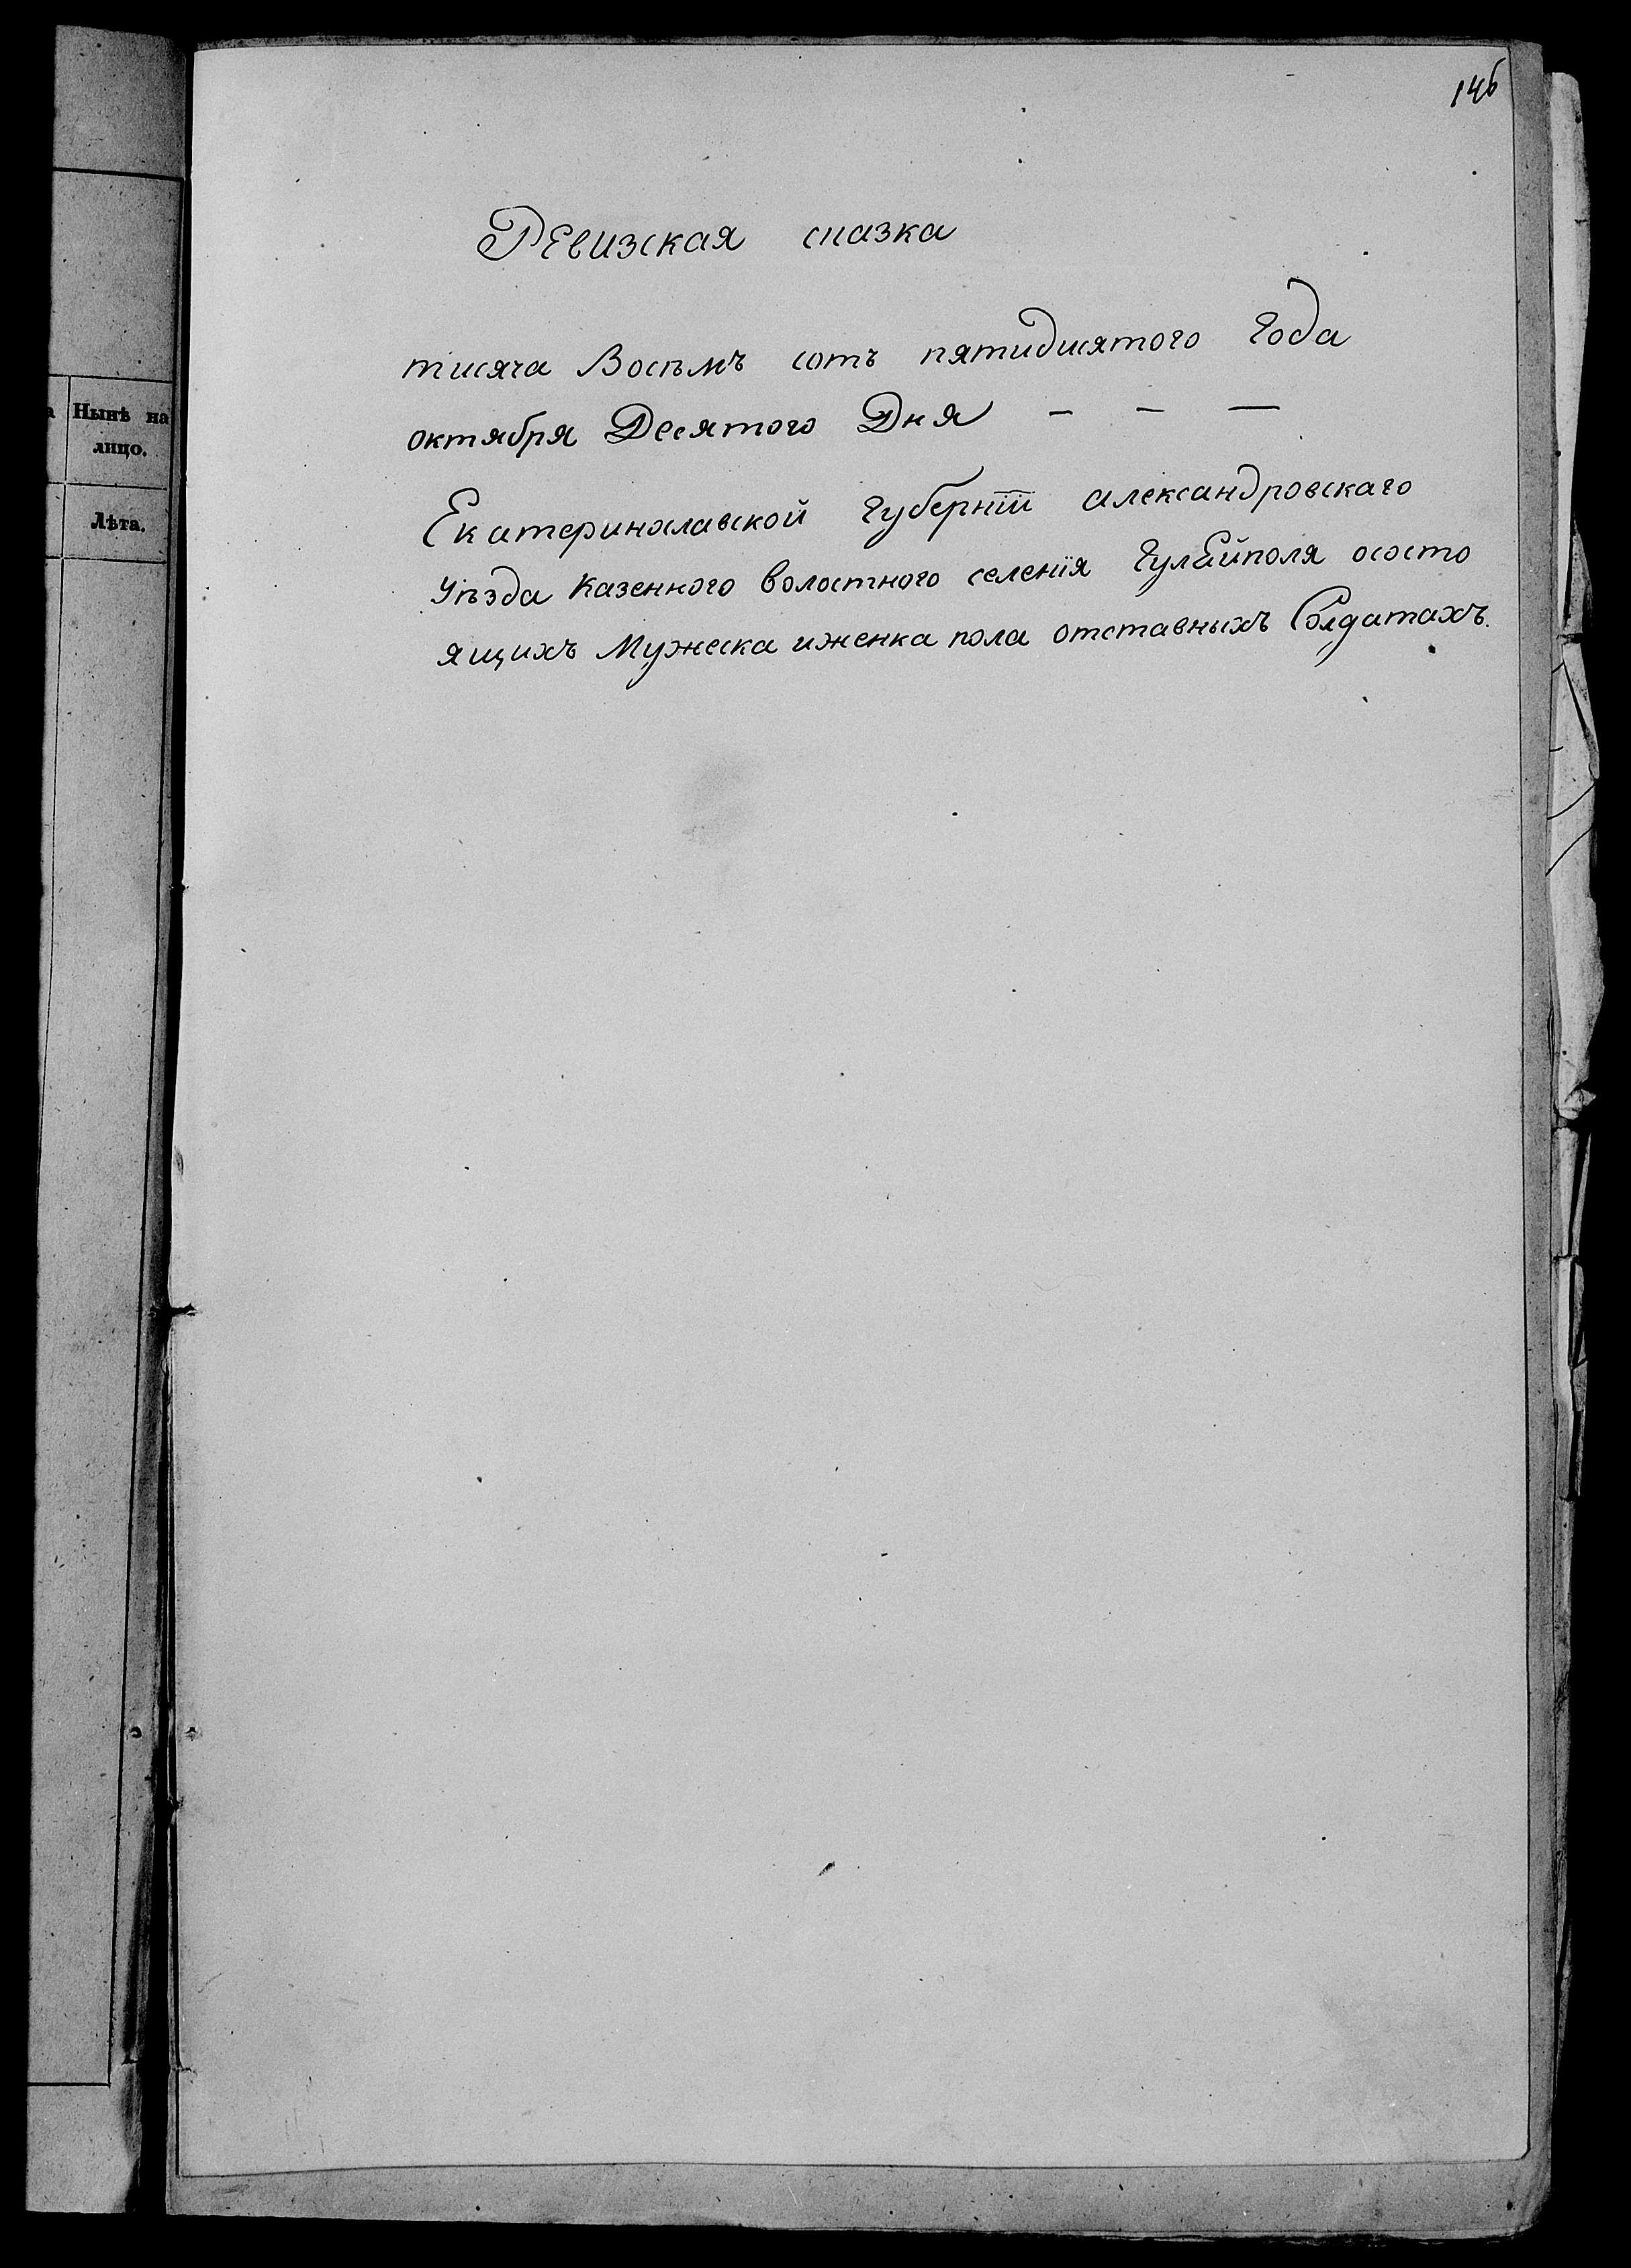 146
Ревизская сказка
тисяча Восьмъ сотъ пятидисятого Года
октября Десятого Дня — — —
Екатеринославской Губернїи александровскаго
Уѣзда Казенного волостного селенїя Гуляйполя ососто
ящихъ Мужеска иженка пола отставныхъ Солдатахъ.
а
Нынѣ на
лицо.
Лѣта.